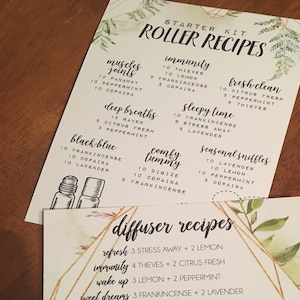 STARTER KIT
ROLLER RECIPES
muscles
joints
10 PANAWAY
10 PEPPERMINT
10 COPAIBA
immunity
10 THIEVES
10 LEMON
10 FRANKINCENSE
5 COPAIBA
fresh+clean
10 CITRUS FRESH
3 PEPPERMINT
3 THIEVES
deep breaths
10 RAVEN
5 CITRUS FRESH
3 PEPPERMINT
sleepy time
10 FRANKINCENSE
8 STRESS AWAY
5 LAVENDER
black+blue
10 FRANKINCENSE
10 COPAIBA
10 LAVENDER
comfy
tummy
10 DIGIZE
10 COPAIBA
5 FRANKINCENSE
seasonal sniffles
10 LAVENDER
10 LEMON
10 PEPPERMINT
10 COPAIBA
diffuser recipes
refresh 3 STRESS AWAY + 2 LEMON
immunity 4 THIEVES + 2 CITRUS FRESH
wake up 3 LEMON + 2 PEPPERMINT
sweet dreams 3 FRANKINCENSE + 2 LAVENDER